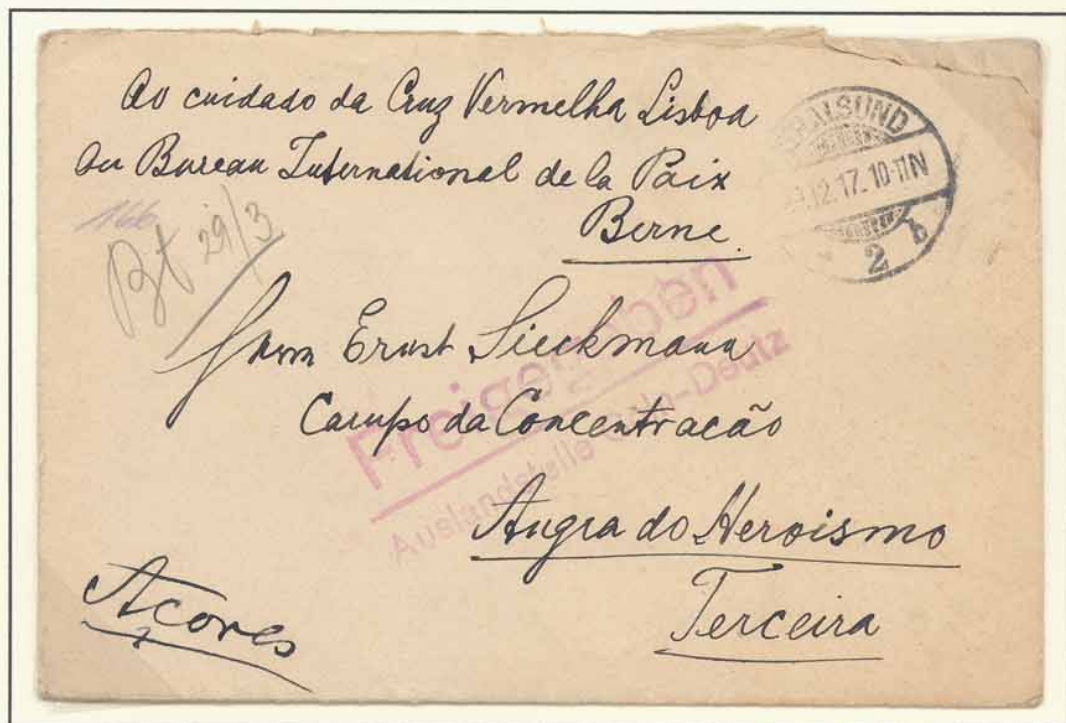 Ao cuidado da Cruz Vermelha Lisboa
ou Bureau International de la Paix
Berne.
STRALSUND
12.17. 10-11N
2 b
166
29/3
Herrn Ernst Sieckmann
Campo da Concentracão
Freigegeben
Auslandstelle Köln-Deutz
Angra do Heroismo
Terceira
Açores